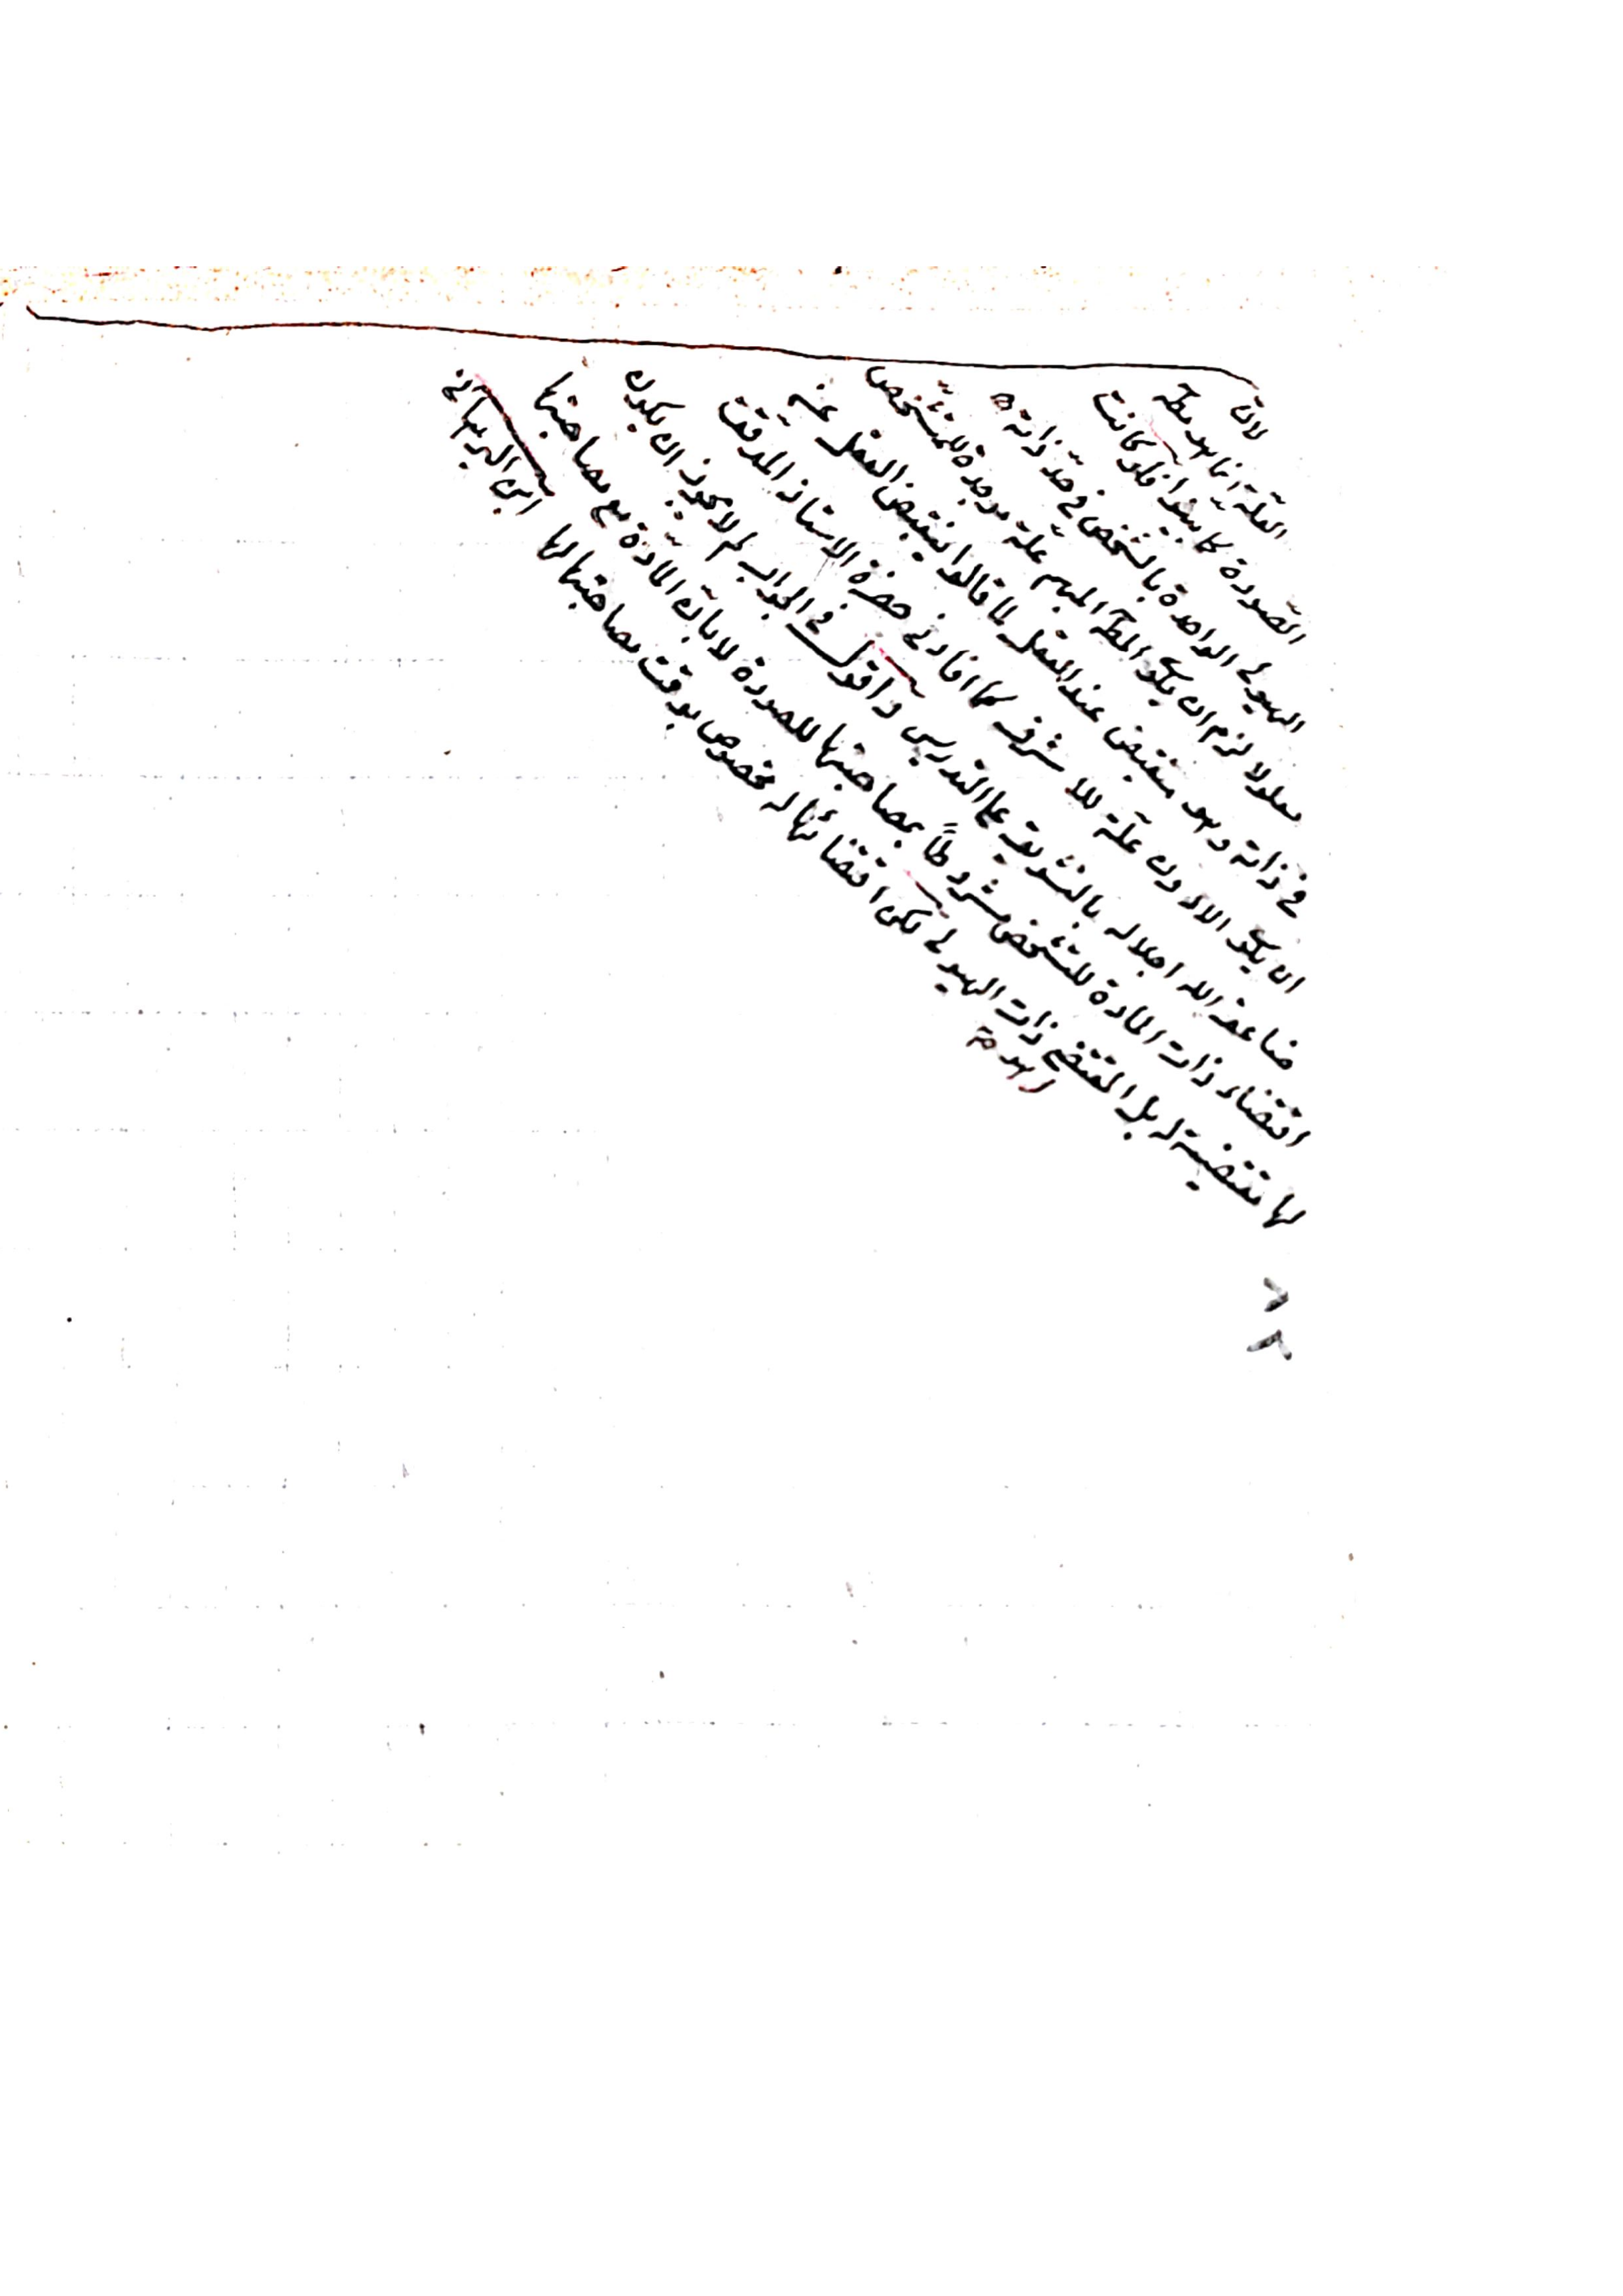 لانّ
العلّة انّما هو مط
الصّورة كما سبق فلو كانت
الهيولى الواحدة بالشخص في حدّ ذاته
معلولا لزم ان يكو المط المبهم علّة موجدة للمتشخص
في ذاته وهو منتقض عند العقل لما قالوا ينتقض العقل عن
ان يكو الادون علّة للاشرف كما افادني حضرة الاستاذ المدقق
ضاعف الله اجلاله بالتشريف على التدريس واقول في الجواب لم لا يجوز ان يكون
اقتضاء ذات المادة للتشخص مشروطاً بمصاحبتها للصورة لا بانّ المادّة مع مصاحبتها
لها مقتضية له بل المقتضى ذات الهيولى لكن اقتضائها له مخصوص بوقت مصاحبتها لها